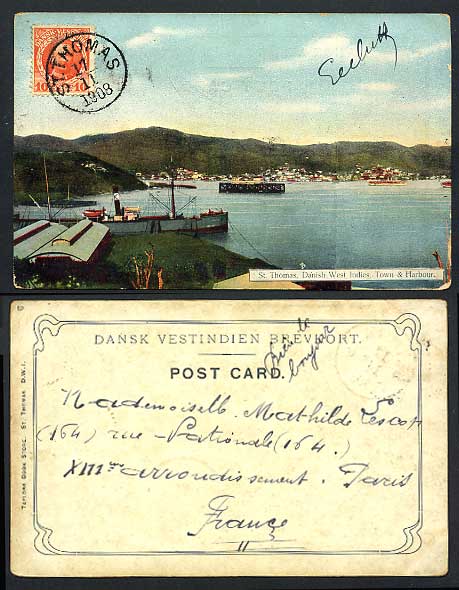 ST THOMAS
17
11
1908
10 10
St. Thomas, Danish West Indies, Town & Harbour.
DANSK VESTINDIEN BREVKORT.
POST CARD.
bonjour
Mademoiselle Mathilde
(164) rue Nationale (164.)
XIIIme arrondissement. Paris
France
TAYLORS BOOK STORE. ST. THOMAS. D.W.I.